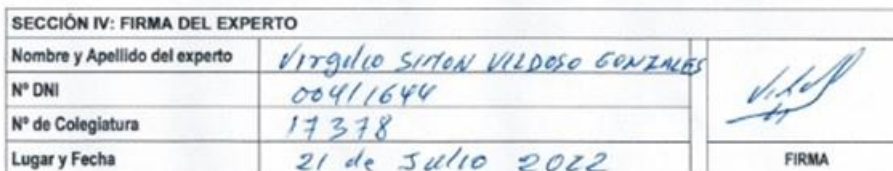 SECCIÓN IV: FIRMA DEL EXPERTO
Nombre y Apellido del experto Virgilio SIMON VILDOSO GONZALES
Nº DNI 00411644
Nº de Colegiatura 17378
Lugar y Fecha 21 de Julio 2022
FIRMA